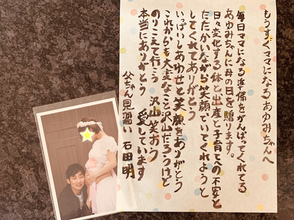 もうすぐママになるあゆみちゃんへ
毎日ママになる準備をがんばってくれてる
あゆみちゃんに母の日を贈ります。
日々変化する体と出産と子育ての不安と
たたかいながら笑顔でいてくれようと
してくれてありがとう
いっぱいしあわせと笑顔をありがとう
これからも大変なこと沢山だろうけど
のりこえて行こう 沢山笑おう
本当にありがとう 愛しています
父ちゃん見習い 石田明